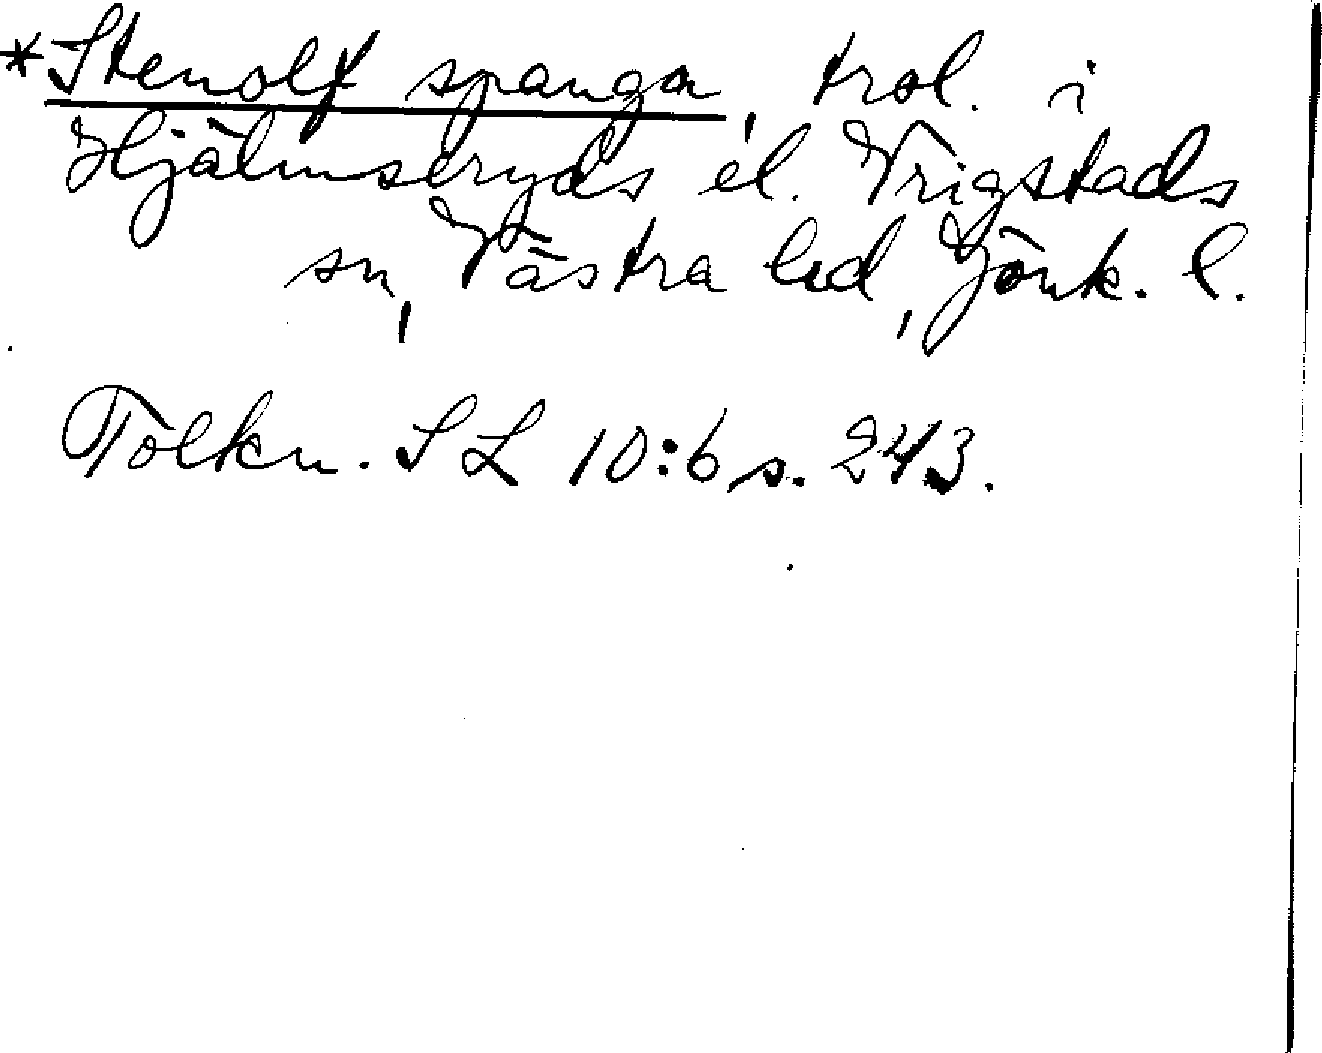 *Stenolf spanga, trol. i
Hjälmseryds el. Vrigstads
sn, Västra hd, Jönk. l.
Tolkn. SL 10:6 s. 243.